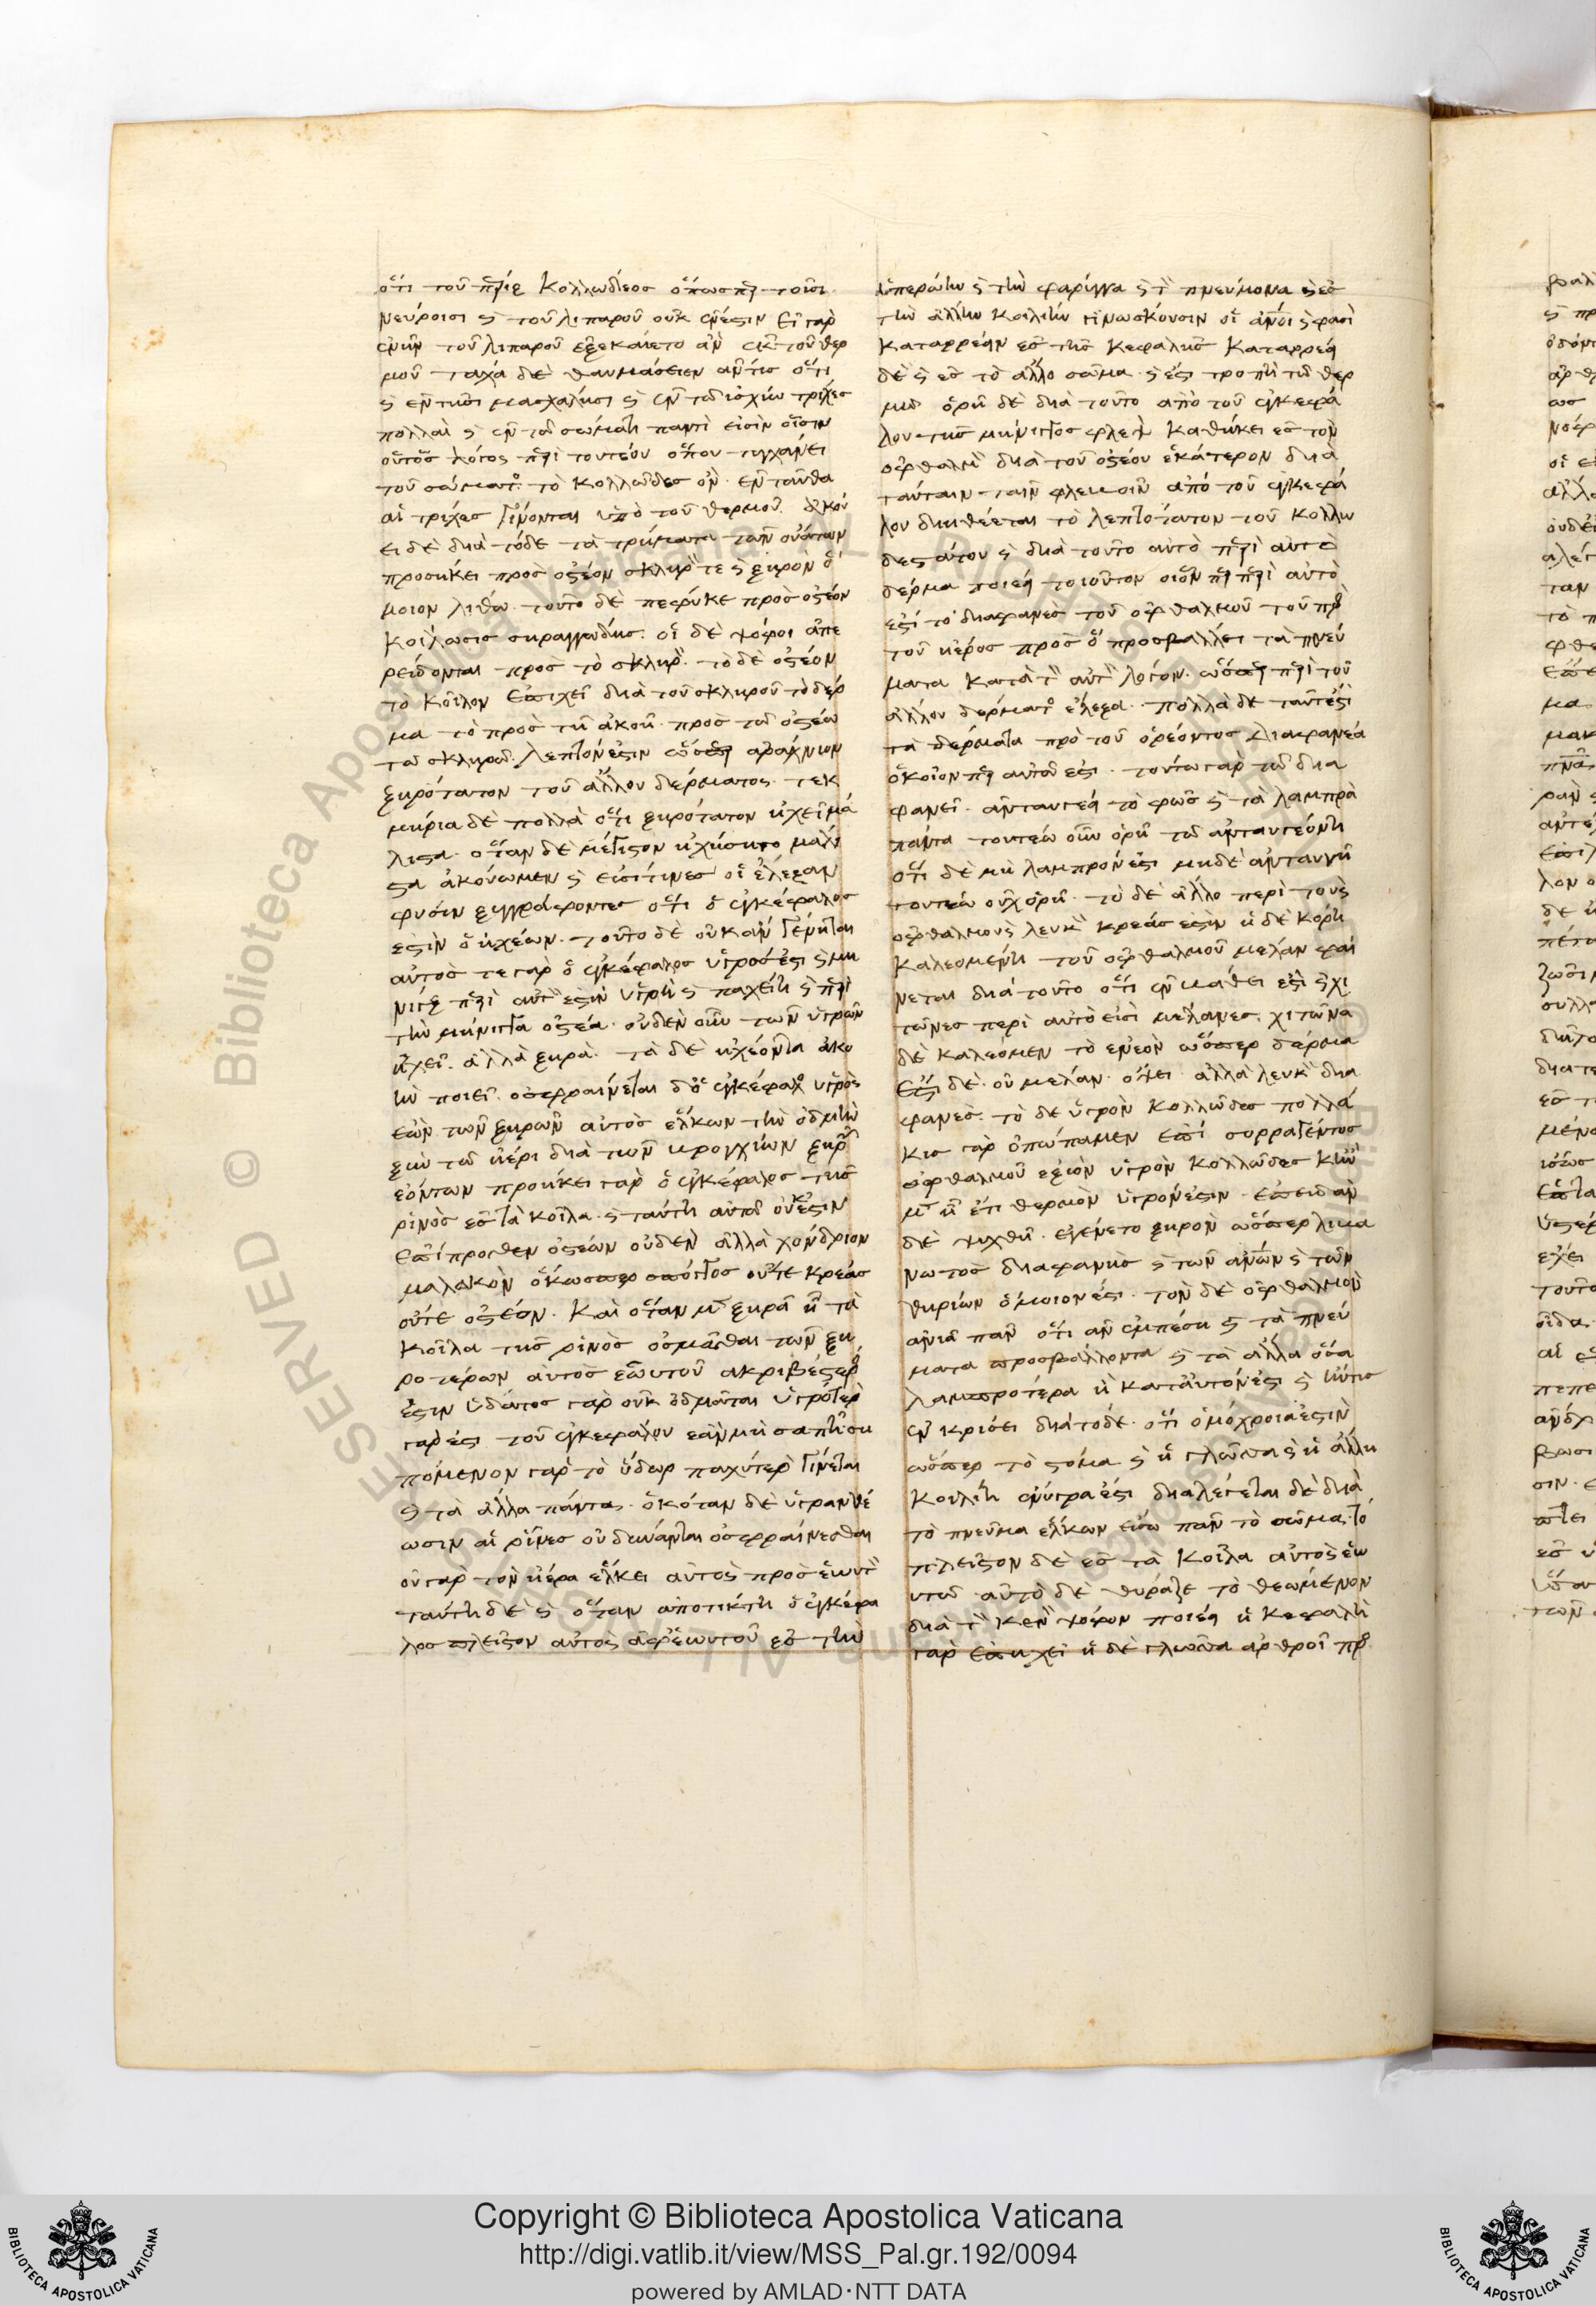 ὅτι τοῦ περὶξ κολλώδεος ὅπωσπερ τοῖσι
νεύροισι καὶ τοῦ λιπαροῦ οὐκ ἔνεστιν εἰ γὰρ
ἐνῆν τοῦ λιπαροῦ ἐξεκαίετο ἂν ἐκ τοῦ θερ
μοῦ τάχα δὲ θαυμάσειεν ἄν τις ὅτι
καὶ ἐν τῆσι μασχάλησι καὶ ἐν τῶ ἰσχίω τρίχες
πολλαὶ καὶ ἐν τῶ σώματι παντὶ εἰσὶν οἷσιν
οὗτος λόγος περὶ τουτέου ὅπου τυγχάνει
τοῦ σώματος τὸ κολλῶδες ὂν. ἐνταῦθα
αἱ τρίχες γίνονται ὑπὸ τοῦ θερμοῦ. ἀκού
ει δὲ διὰ τόδε τὰ τρήματα τῶν οὐάτων
προσήκει πρὸς ὀστέον σκληρόν τε καὶ ξηρὸν ὅ
μοιον λίθω. τοῦτο δὲ πέφυκε πρὸς ὀστέον
κοίλωσις σηραγγώδης. οἱ δὲ ψόφοι ἀπε
ρείδονται πρὸς τὸ σκληρόν. τὸ δὲ ὀστέον
τὸ κοῖλον ἐπηχεῖ διὰ τοῦ σκληροῦ τὸ δέρ
μα τὸ πρὸς τῆ ἀκοῆ. πρὸς τῶ ὀστέω
τῶ σκληρῶ. λεπτόν ἐστιν ὥσπερ ἀράχνιον
ξηρότατον τοῦ ἄλλου δέρματος. τεκ
μήρια δὲ πολλὰ ὅτι ξηρότατον ἠχεῖ μά
λιστα. ὅταν δὲ μέγιστον ἠχήση τὸ μάλι
στα ἀκούωμεν καὶ εἰσί τινες οἳ ἔλεξαν
φύσιν ξυγγράφοντες ὅτι ὁ ἐγκέφαλος
ἐστὶν ὁ ἠχέων. τοῦτο δὲ οὐκ ἂν γένηται
αὐτός τε γὰρ ὁ ἐγκέφαλος ὑγρός ἐστι καὶ μη
νιγξ περὶ αὐτόν ἐστιν ὑγρὴ καὶ παχείη καὶ περὶ
τὴν μήνιγγα ὀστέα. οὐδὲν οὖν τῶν ὑγρῶν
ἠχεῖ. ἀλλὰ ξηρὰ. τὰ δὲ ἠχέοντα ἀκο
ὴν ποιεῖ. ὀσφραίνεται δὲ ὁ ἐγκέφαλος ὑγρὸς
ἐὼν τῶν ξηρῶν αὐτὸς ἕλκων τὴν ὀδμὴν
ξὺν τῶ ἠέρι διὰ τῶν βρογχίων ξηρῶν
ἐόντων προσήκει γὰρ ὁ ἐγκέφαλος τῆς
ῥινὸς ἐς τὰ κοῖλα. καὶ ταύτη αὐτῶ οὐκ ἔστιν
ἐπίπροσθεν ὀστέων οὐδὲν ἀλλὰ χόνδριον
μαλακὸν ὅκωσπερ σπόγγος οὔτε κρέας
οὔτε ὀστέον. καὶ ὅταν μὲν ξηρὰ ἦ τὰ
κοῖλα τῆς ῥινὸς ὀσμᾶσθαι τῶν ξη
ροτέρων αὐτὸς ἑωυτοῦ ἀκριβέστερός
ἐστιν ὕδατος γὰρ οὐκ ὀδμᾶται ὑγρότερον
γάρ ἐστι τοῦ ἐγκεφάλου ἐὰν μὴ σαπῆ ση
πόμενον γὰρ τὸ ὕδωρ παχύτερον γίνεται
καὶ τὰ ἄλλα πάντα. ὁκόταν δὲ ὑγρανθέ
ωσιν αἱ ῥῖνες οὐ δύνανται ὀσφραίνεσθαι
οὐ γὰρ τὸν ἠέρα ἕλκει αὐτὸς πρὸς ἑωυτὸν
ταύτη δὲ καὶ ὅταν ἀποτήκη ὁ ἐγκέφα
λος πλεῖστον αὐτὸς ἀφ' ἑωυτοῦ ἐς τὴν
ὑπερώην καὶ τὴν φάρυγγα καὶ τὸν πνεύμονα καὶ ἐς
τὴν ἄλλην κοιλίην γινώσκουσιν οἱ ἄνθρωποι καὶ φασὶ
καταρρέειν ἐς τῆς κεφαλῆς καταρρέει
δὲ καὶ ἐς τὸ ἄλλο σῶμα. καὶ ἔστι τροπὴ τῶ θερ
μῶ ὁρῆ δὲ διὰ τοῦτο ἀπὸ τοῦ ἐγκεφά
λου τῆς μήνιγγος φλὲψ καθήκει ἐς τὸν
ὀφθαλμὸν διὰ τοῦ ὀστέου ἑκάτερον διὰ
ταύταιν ταῖν φλεβοῖν ἀπὸ τοῦ ἐγκεφά
λου διηθέεται τὸ λεπτότατον τοῦ κολλω
δεστάτου καὶ διὰ τοῦτο αὐτὸ περὶ αὐτὸ
δέρμα ποιέει τοιοῦτον οἷόν περ περὶ αὐτό
ἐστι τὸ διαφανὲς τοῦ ὀφθαλμοῦ τοῦ πρὸς
τοῦ ἠέρος πρὸς ὃ προσβάλλει τὰ πνεύ
ματα κατὰ τὸν αὐτὸν λόγον. ὥσπερ περὶ τοῦ
ἄλλου δέρματος ἔλεξα. πολλὰ δὲ ταῦτ' ἐστὶ
τὰ δέρματα πρὸ τοῦ ὁρέοντος διαφανέα
ὁκοῖόν περ αὐτῶ ἐστι. τούτω γὰρ τῶ δια
φανεῖ. ἀνταυγέει τὸ φῶς καὶ τὰ λαμπρὰ
πάντα τουτέω οὖν ὁρῆ τῶ ἀνταυγέοντι
ὅτι δὲ μὴ λαμπρόν ἐστι μηδὲ ἀνταυγῆ
τουτέω οὐχ ὁρῆ. τὸ δὲ ἄλλο περὶ τοὺς
ὀφθαλμοὺς λευκὸν κρέας ἐστὶν ἡ δὲ κόρη
καλεομένη τοῦ ὀφθαλμοῦ μέλαν φαί
νεται διὰ τοῦτο ὅτι ἐν βάθει ἐστὶ καὶ χι
τῶνες περὶ αὐτό εἰσι μέλανες. χιτῶνα
δὲ καλέομεν τὸ ἐνεὸν ὥσπερ δέρμα
ἔστι δὲ οὐ μέλαν ὄψει ἀλλὰ λευκὸν δια
φανὲς. τὸ δὲ ὑγρὸν κολλῶδες πολλά
κις γὰρ ὀπώπαμεν ἐπὶ συρραγέντος
ὀφθαλμοῦ ἐξιὸν ὑγρὸν κολλῶδες κἢν
μὲν ἦ ἔτι θερμὸν ὑγρόν ἐστιν. ἐπειδὰν
δὲ ψυχθῆ. ἐγένετο ξηρὸν ὥσπερ λίβα
νωτὸς διαφανὴς καὶ τῶν ἀνθρώπων καὶ τῶν
θηρίων ὅμοιόν ἐστι. τὸν δὲ ὀφθαλμὸν
ἀνιᾶ πᾶν ὅτι ἂν ἐμπέση καὶ τὰ πνεύ
ματα προσβάλλοντα καὶ τὰ ἄλλα ὅσα
λαμπρότερα ἢ κατ' αὐτόν ἐστι καὶ ἤν τις
ἐγκρίσει διὰ τόδε. ὅτι ὁμόχροιά ἐστιν
ὥσπερ τὸ στόμα καὶ ἡ γλῶσσα καὶ ἡ ἄλλη
κοιλίη ἐνυγρά ἐστι διαλέγεται δὲ διὰ
τὸ πνεῦμα ἕλκων εἴσω πᾶν τὸ σῶμα. τὸ
πλεῖστον δὲ ἐς τὰ κοῖλα αὐτὸς ἑω
υτῶ αὐτὸ δὲ θύραζε τὸ θεώμενον
διὰ τὸν κενὸν ψόφον ποιέει ἡ κεφαλὴ
γὰρ ἐπηχεῖ ἡ δὲ γλῶσσα ἀρθροῖ προσ
Copyright © Biblioteca Apostolica Vaticana
http://digi.vatlib.it/view/MSS_Pal.gr.192/0094
powered by AMLAD·NTT DATA